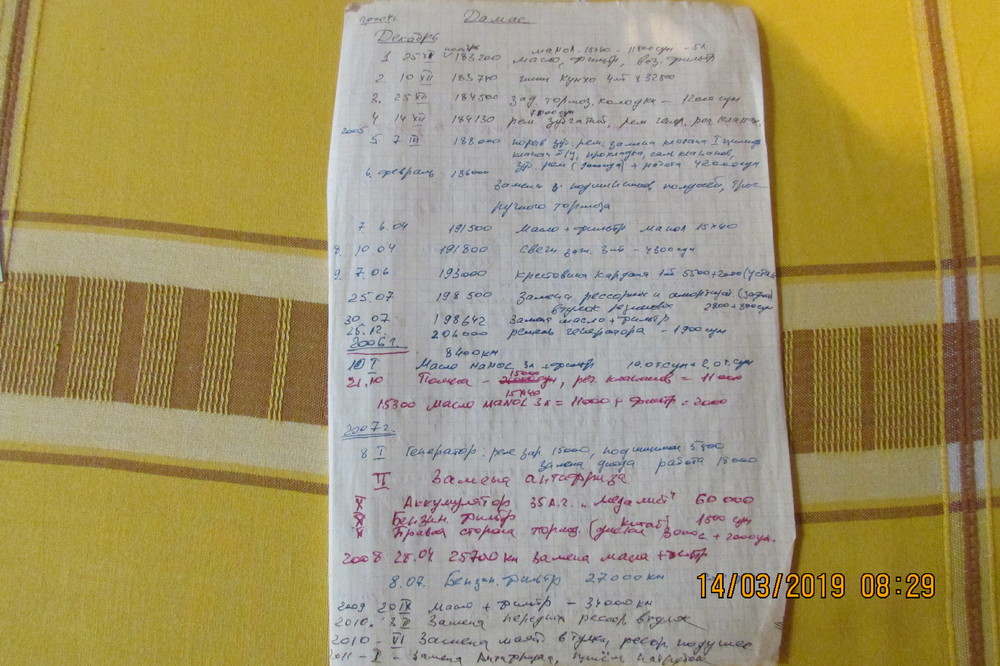 2004г. Дамас
Декабрь
ноябрь манол-15х40 - 11800сум - 5л
1 25 XI 183200 масло, фильтр, воз. фильтр
2. 10 XII 183740 шины Кумхо 4шт х 32500
3. 25 XII 184500 зад. тормоз. колодки - 12000 сум
4 14 XII 184130 рем. рем генр. рег клапан.
2005
5 7 III 188000 рем. замена клапана I цилинд
прокладки, клапанов,
рем + работа 42000сум
6. февраль 186000
Замена подшипников полуосей, трос
ручного тормоза
7 6.04 191500 Масло + фильтр манол 15х40
8. 10 04 191800 Свечи заж. 3шт - 4300сум
9. 7.06 193000 крестовина кардана 1шт 5500+2000
25.07 198500 Замена рессорных и амортиз. (задних)
втулок резиновых 2800 + 3000сум
30.07 198642 Замена масло + фильтр
25.12. 206000 ремень генератора - 1900сум
2006г.
8400км
10 I Масло манол 3л + фильтр 10.0т.сум + 2,0т.сум
21.10 Помпа - 15000 сум, рег. клапанов = 11000
15х40
15300 масло манол 3л = 11000 + фильтр = 2000
2007г.
8 I Генератор: реле зар. 15000, подшипники 5800
замена диода работа 18000
II Замена антифриза
X Аккумулятор 35А.г. „Мегалит" 60000
XI Бензин. фильтр Китай 1500 сум
XI Правая сторона тормоз. 3000с + 2000сум.
2008 28.04 25700 км замена масла + фильтр
8.07. Бензин. фильтр 27000км
2009 20 IX Масло + фильтр - 34000км
2010. Замена передних рессор втулки
2010 - VI Замена маят. втулки, рессор подушек
2011 - I - Замена Антифриза,
14/03/2019 08:29